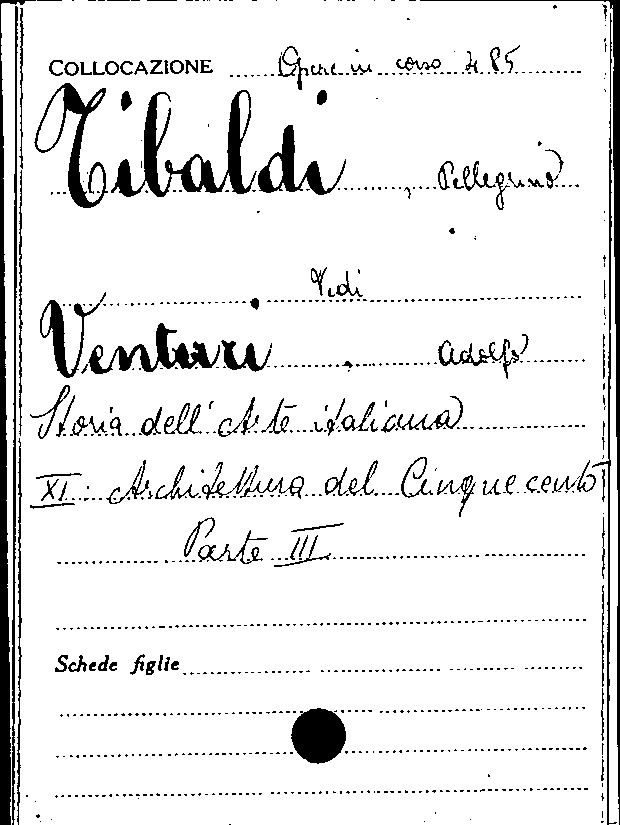 COLLOCAZIONE Opere in corso 485
Tibaldi, Pellegrino
Vedi
Venturi, Adolfo
Storia dell'Arte italiana
XI: Architettura del Cinquecento
Parte III
Schede figlie